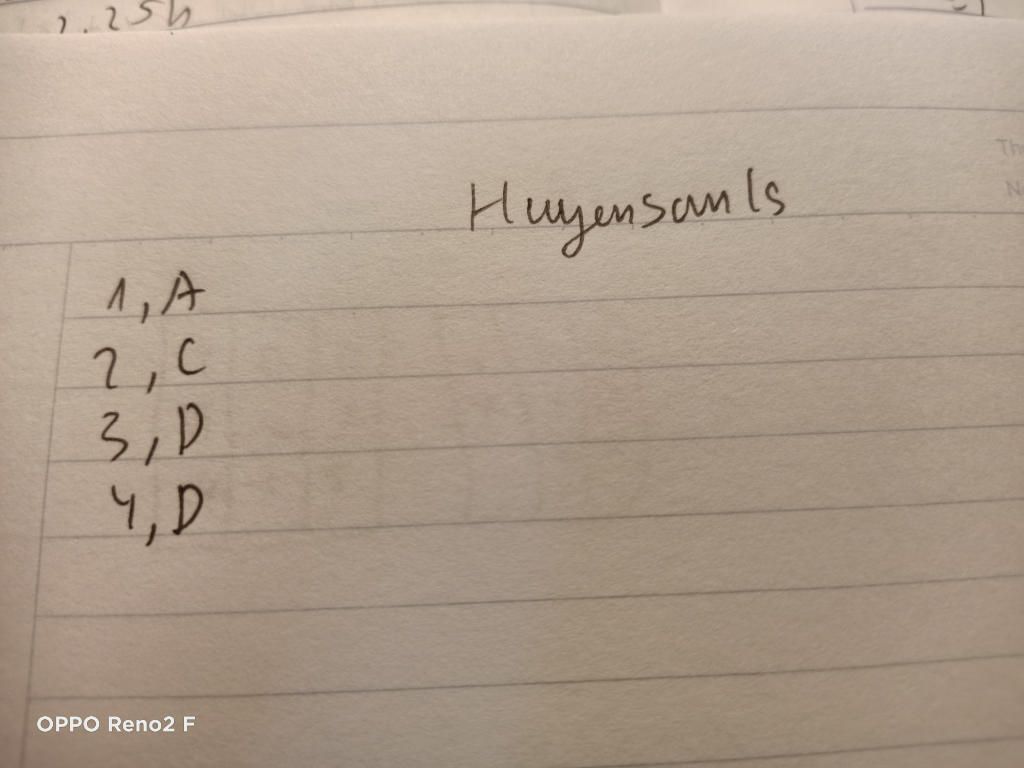 2.25h
Huyensanls
1, A
2, C
3, D
4, D
OPPO Reno2 F